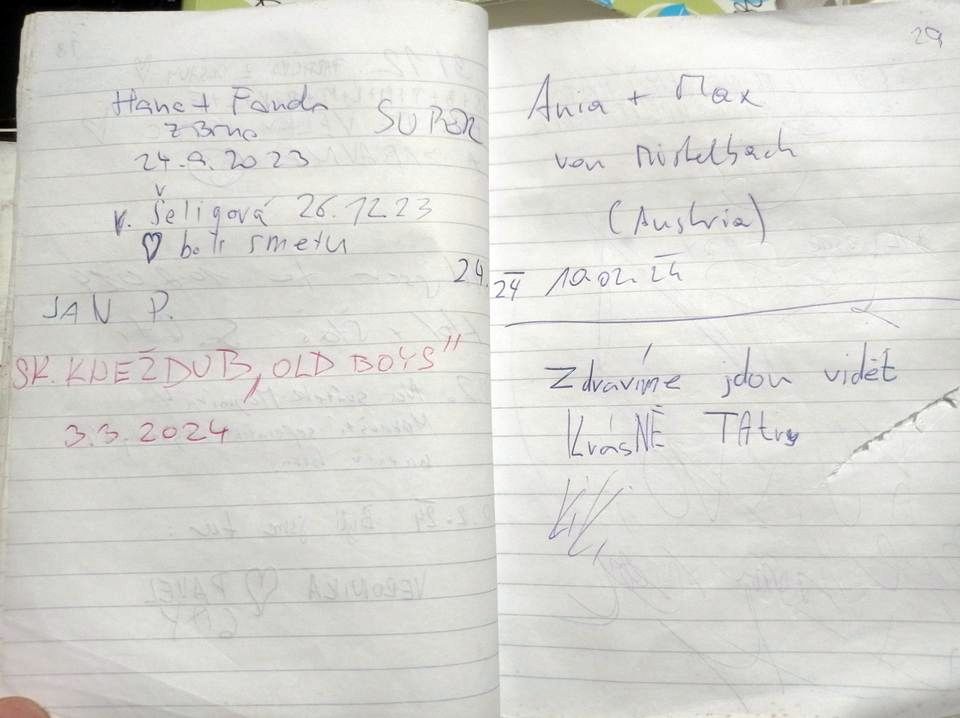 Hana + Fanda
z Brna
SUPER
24.9.2023
v. Šeligová 26.12.23
♡ bo tr smetu
JAN P.
SK. KNEŽDUB „OLD BOYS"
3.3.2024
29
Ania + Max
von Mistelbach
(Austria)
24. 24 10.02.24
Zdravíme jdou vidět
KrásNÉ TAtry
VERONIKA ♡ PAVEL